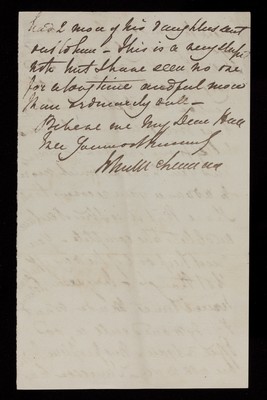 had 2 more of his daughters sent
out to him - This is a very stupid
note but I have seen no one
for a long time and feel more
than ordinarily dull -
Believe me My Dear Hall
Ever Yours most sincerely